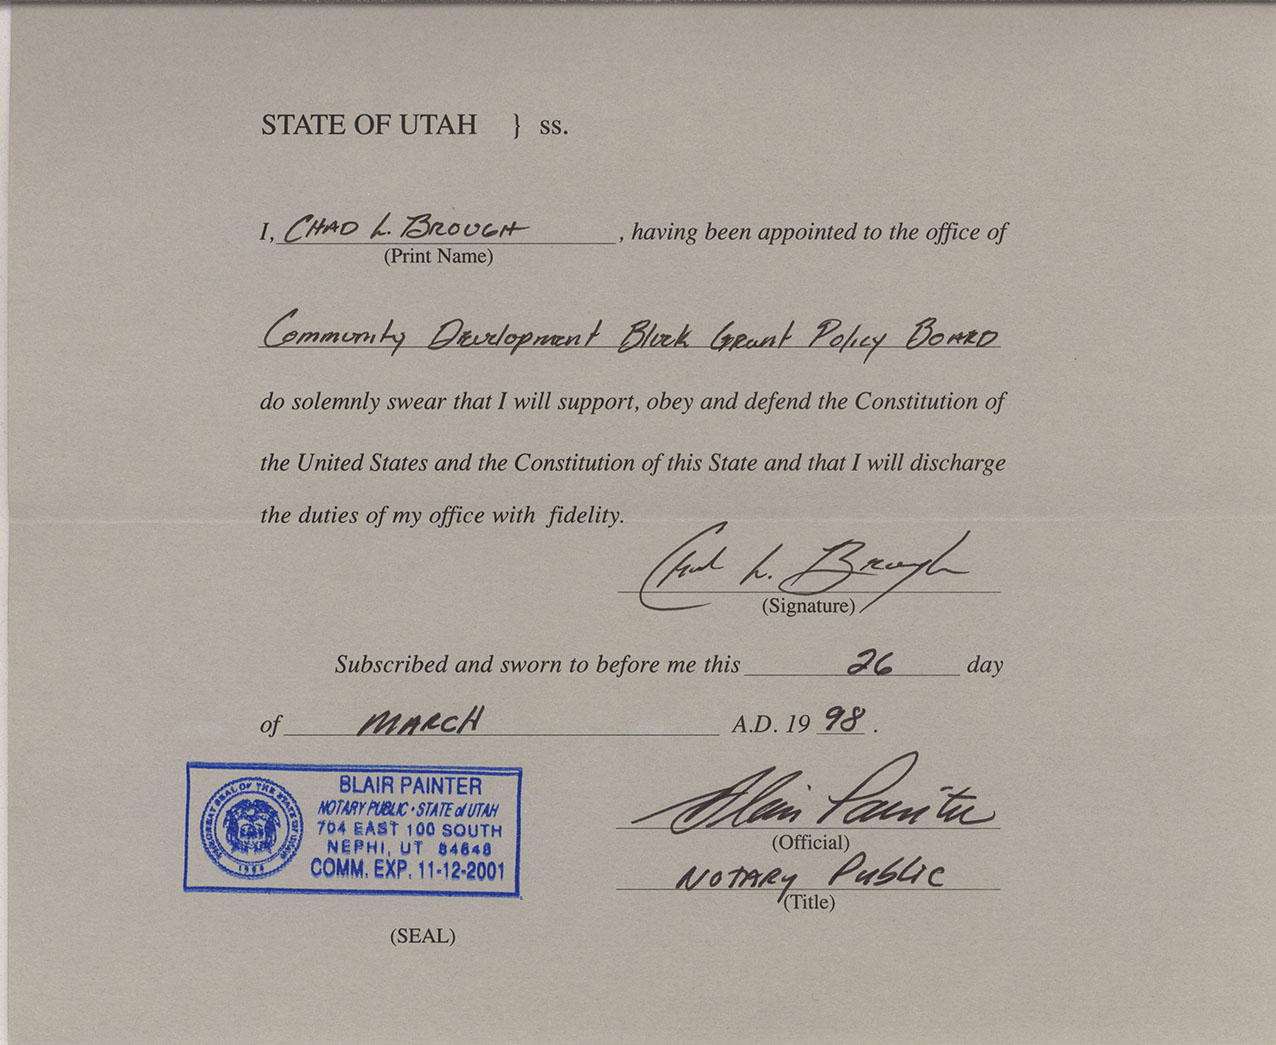 STATE OF UTAH } ss.
I, CHAD L. BROUGH, having been appointed to the office of
(Print Name)
Community Development Block Grant Policy Board
do solemnly swear that I will support, obey and defend the Constitution of
the United States and the Constitution of this State and that I will discharge
the duties of my office with fidelity.
Chad L. Brough
(Signature)
Subscribed and sworn to before me this 26 day
of MARCH A.D. 19 98.
BLAIR PAINTER
NOTARY PUBLIC • STATE of UTAH
704 EAST 100 SOUTH
NEPHI, UT 84648
COMM. EXP. 11-12-2001
Blair Painter
(Official)
NOTARY Public
(Title)
(SEAL)